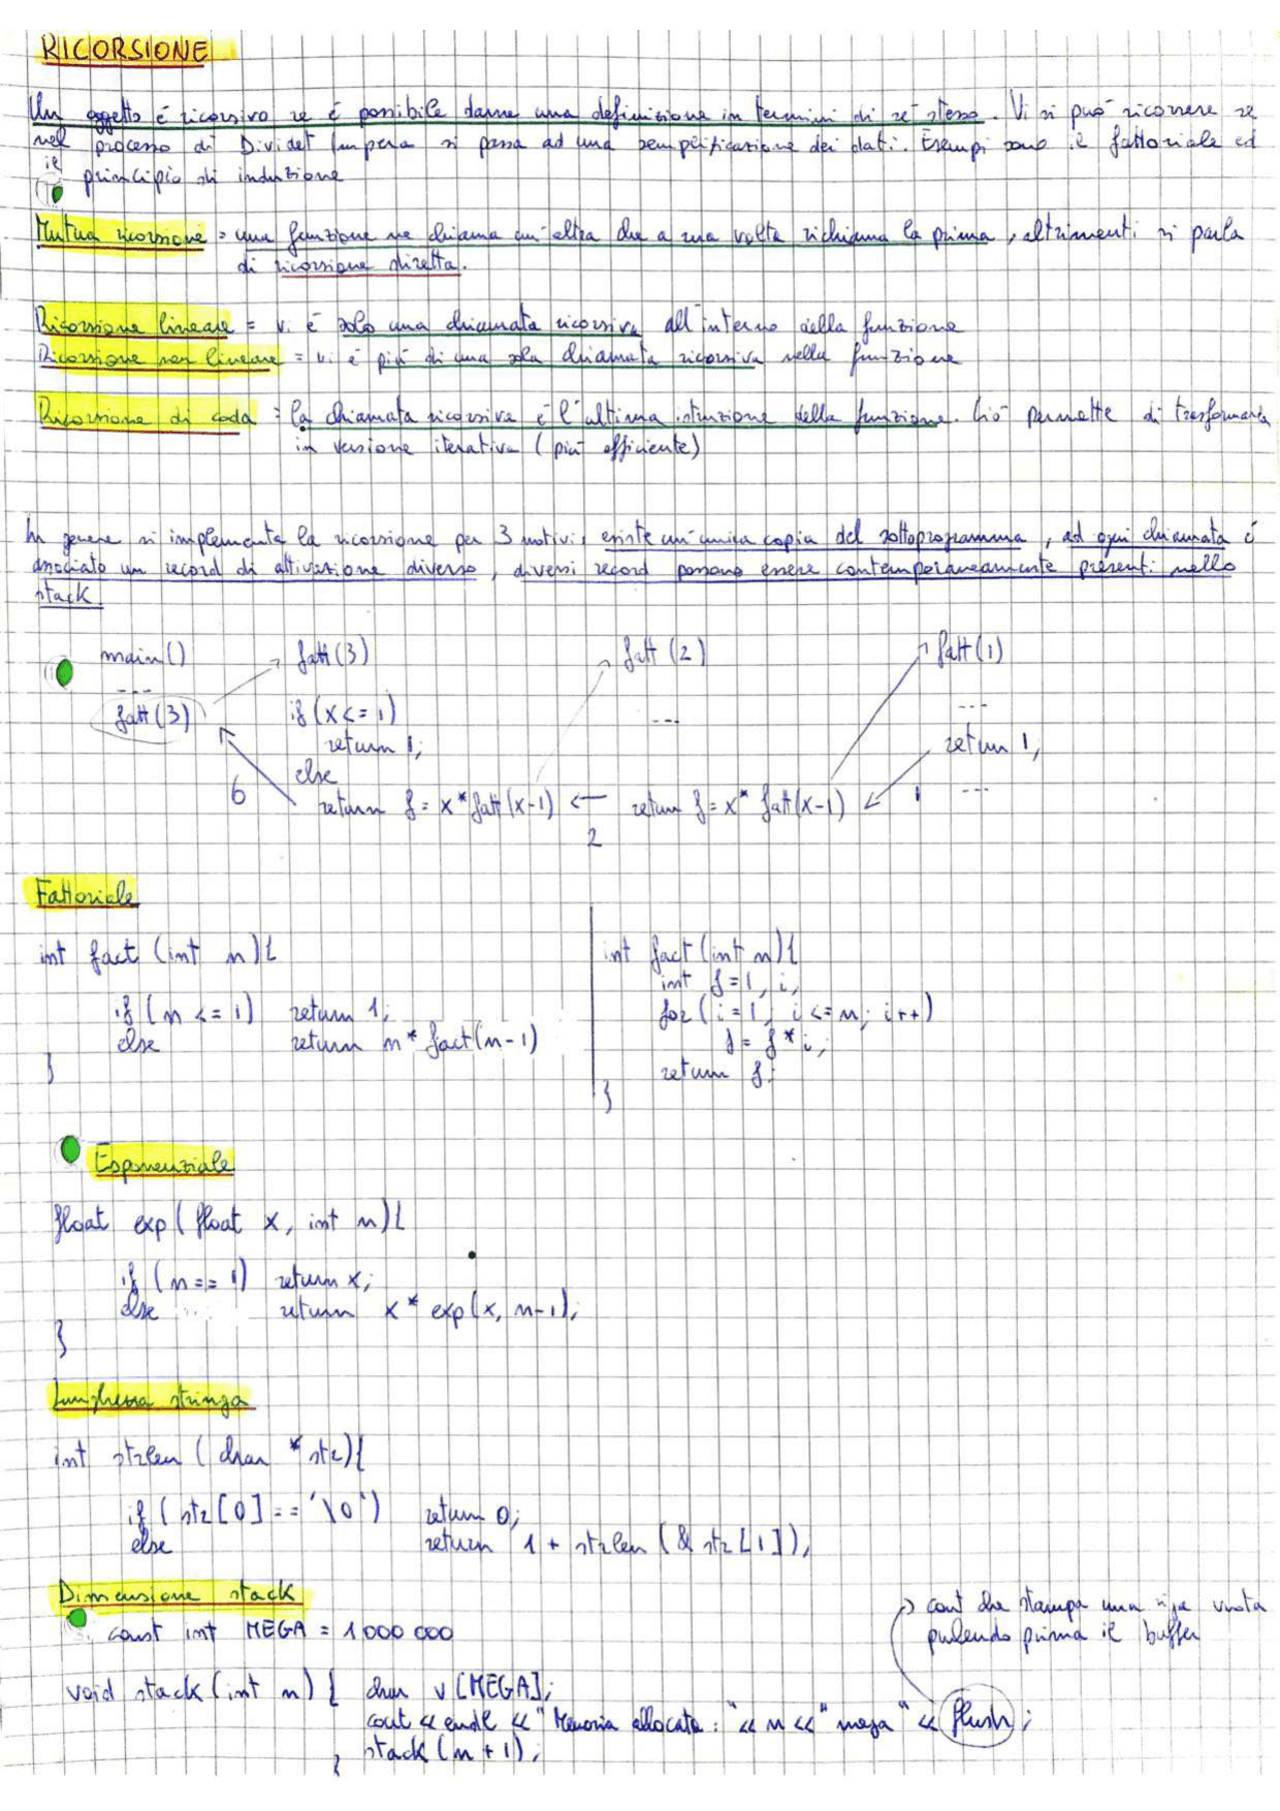 RICORSIONE
Un oggetto é ricorsivo se é possibile darne una definizione in termini di sé stesso. Vi si può ricorrere se
nel processo di Dividet Impera si passa ad una semplificazione dei dati. Esempi sono il fattoriale ed
il principio di induzione
Mutua ricorsione = una funzione ne chiama un'altra che a sua volta richiama la prima, altrimenti si parla
di ricorsione diretta.
Ricorsione lineare = vi é solo una chiamata ricorsiva all'interno della funzione
Ricorsione non lineare = vi é più di una sola chiamata ricorsiva nella funzione
Ricorsione di coda = la chiamata ricorsiva é l'ultima istruzione della funzione. Ciò permette di trasformarla
in versione iterativa (più efficiente)
In genere si implementa la ricorsione per 3 motivi: esiste un'unica copia del sottoprogramma, ad ogni chiamata é
associato un record di attivazione diverso, diversi record possono essere contemporaneamente presenti nello
stack.
main() fatt(3) fatt(2) fatt(1)
--- 
fatt(3) if (x<=1) --- ---
return 1; return 1;
else
6 return f = x*fatt(x-1) ← return f = x* fatt(x-1) 1 ---
2
Fattoriale
int fact (int n){ int fact(int n){
int f=1, i;
if (n <= 1) return 1; for(i=1; i<=n; i++)
else return n* fact(n-1) f= f*i;
} return f;
}
Esponenziale
float exp( float x, int n){
if (n == 1) return x;
else return x* exp(x, n-1);
}
Lunghezza stringa
int strlen ( char *str){
if ( str[0]=='\0') return 0;
else return 1 + strlen (& str[1]);
Dimensione stack
const int MEGA = 1000 000
cout che stampa una riga vuota
pulendo prima il buffer
void stack(int n) { char v[MEGA];
cout << endl << "Memoria allocata: "<< n <<" mega" << flush;
stack(n+1);
}